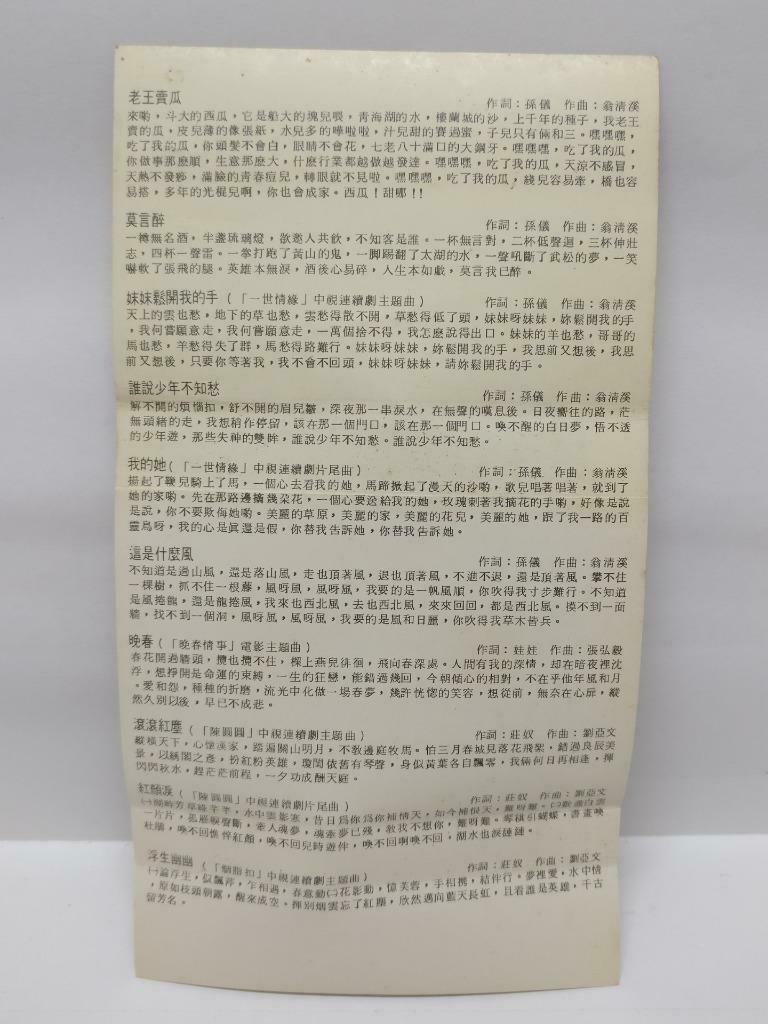 老王賣瓜
作詞：孫儀　作曲：翁清溪
來喲，斗大的西瓜，它是船大的塊兒喂，青海湖的水，樓蘭城的沙，上千年的種子，我老王
賣的瓜，皮兒薄的像張紙，水兒多的嘩啦啦，汁兒甜的賽過蜜，子兒只有倆和三。嘿嘿嘿，
吃了我的瓜，你頭髮不會白，眼睛不會花，七老八十滿口的大鋼牙。嘿嘿嘿，吃了我的瓜，
你做事那麽順，生意那麽大，什麽行業都越做越發達。嘿嘿嘿，吃了我的瓜，天涼不感冒，
天熱不發痧，滿臉的青春痘兒，轉眼就不見啦。嘿嘿嘿，吃了我的瓜，綫兒容易牽，橋也容
易搭，多年的光棍兒啊，你也會成家。西瓜！甜哪！！
莫言醉
作詞：孫儀　作曲：翁清溪
一樽無名酒，半盞琉璃燈，欲邀人共飲，不知客是誰。一杯無言對，二杯低聲迴，三杯伸壯
志，四杯一聲雷。一拳打跑了黃山的鬼，一脚踢翻了太湖的水，一聲吼斷了武松的夢，一笑
嚇軟了張飛的腿。英雄本無淚，酒後心易碎，人生本如戲，莫言我已醉。
妹妹鬆開我的手（「一世情緣」中視連續劇主題曲）
作詞：孫儀　作曲：翁清溪
天上的雲也愁，地下的草也愁，雲愁得散不開，草愁得低了頭，妹妹呀妹妹，妳鬆開我的手
，我何嘗願意走，我何嘗願意走，一萬個捨不得，我怎麽說得出口。妹妹的羊也愁，哥哥的
馬也愁，羊愁得失了群，馬愁得路難行。妹妹呀妹妹，妳鬆開我的手，我思前又想後，我思
前又想後，只要你等著我，我不會不回頭，妹妹呀妹妹，請妳鬆開我的手。
誰說少年不知愁
作詞：孫儀　作曲：翁清溪
解不開的煩惱扣，舒不開的眉兒皺，深夜那一串淚水，在無聲的嘆息後。日夜嚮往的路，茫
無頭緒的走，我想稍作停留，該在那一個門口，該在那一個門口。喚不醒的白日夢，悟不透
的少年遊，那些失神的雙眸，誰說少年不知愁。誰說少年不知愁。
我的她（「一世情緣」中視連續劇片尾曲）
作詞：孫儀　作曲：翁清溪
揚起了鞭兒騎上了馬，一個心去看我的她，馬蹄掀起了漫天的沙喲，歌兒唱著唱著，就到了
她的家喲。先在那路邊摘幾朵花，一個心要送給我的她，玫瑰刺著我摘花的手喲，好像是說
是說，你不要欺侮她喲。美麗的草原，美麗的家，美麗的花兒，美麗的她，跟了我一路的百
靈鳥呀，我的心是眞還是假，你替我告訴她，你替我告訴她。
這是什麼風
作詞：孫儀　作曲：翁清溪
不知道是過山風，還是落山風，走也頂著風，退也頂著風，不進不退，還是頂著風。攀不住
一棵樹，抓不住一根藤，風呀風，風呀風，我要的是一帆風順，你吹得我寸步難行。不知道
是風捲龍，還是龍捲風，我來也西北風，去也西北風，來來回回，都是西北風。摸不到一面
牆，找不到一個洞，風呀風，風呀風，我要的是風和日麗，你吹得我草木皆兵。
晚春（「晚春情事」電影主題曲）
作詞：娃娃　作曲：張弘毅
春花開過牆頭，攬也攬不住，樑上燕兒徘徊，飛向春深處。人間有我的深情，却在暗夜裡沈
浮，想掙開是命運的束縛，一生的狂戀，能錯過幾回，今朝傾心的相對，不在乎他年風和月
。愛和怨，種種的折磨，流光中化做一場春夢，幾許恍惚的笑容，想從前，無奈在心扉，縱
然久別以後，早已不成悲。
滾滾紅塵（「陳圓圓」中視連續劇主題曲）
作詞：莊奴　作曲：劉亞文
縱橫天下，心懷漢家，踏遍關山明月，不教邊庭牧馬。怕三月春城見落花飛絮，錯過良辰美
景，以綉閣之彥，扮紅粉英雄，瓊閨依舊有琴聲，身似黃葉各自飄零，我倆何日再相逢，揮
閃閃秋水，趕茫茫前程，一夕功成酬天庭。
紅顏淚（「陳圓圓」中視連續劇片尾曲）
作詞：莊奴　作曲：劉亞文
芳草綠芊芊，水中雲影寒，昔日爲你爲你補情天，如今補恨天，難呀難。㈡數盡白雲
一片片，孤雁喚聲斷，牽人魂夢，魂牽夢已殘，教我不想你，難呀難。琴棋引蝴蝶，書畫喚
杜鵑，喚不回憔悴紅顏，喚不回兒時遊伴，喚不回啊喚不回，湖水也淚漣漣。
浮生幽幽（「胭脂扣」中視連續劇主題曲）
作詞：莊奴　作曲：劉亞文
㈠論浮生，似飄萍，乍相遇，春意動㈡花影動，憶芙蓉，手相携，結伴行。夢裡愛，水中情
，原如枝頭朝露，醒來成空。揮別烟雲忘了紅塵，欣然邁向藍天長虹，且看誰是英雄，千古
留芳名。